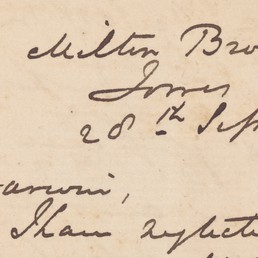 Milton Bro
Torres
28th Sep
arwin,
I have neglecte